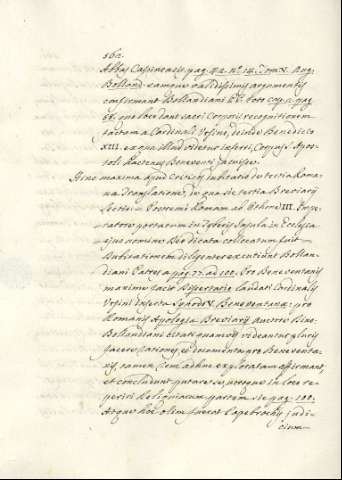 562.
Abbas Cassinensis pag. 42. n.º 14. Tom. V. Aug.
Bolland. eamque validissimis argumentis
confirmant Bollandiani PP. toto cap. 2. pag.
68. quo loco dant sacri Corporis recognitionem
factam a Cardinali Ursino, deinde Benedicto
XIII. ex qua illud videtur inferri, Corpus Apos-
toli hactenus Beneventi jacuisse.
Hinc maxima apud Criticos dubitatio de tertia Roma-
na Translatione, de qua sic tertia Breviarii
Lectio = Postremo Romam ab Othone III. Impe-
ratore portatum in Tyberis Insula in Ecclesia
ejus nomine Deo dicata collocatum fuit =
Dubitationem diligenter excutiunt Bollan-
diani Patres a pag. 77. ad 100. Pro Beneventanis
maxime facit Dissertatio laudati Cardinalis
Ursini inserta Synodo Beneventanæ: pro
Romanis Apologia Breviarii Auctore
Bollandiani licet quamvis videantur pluris
facere rationes, et documenta pro Beneventa-
nis, tamen litem adhuc exploratam affirmant,
et concludunt putare se, utroque in loco re-
periri Reliquiarum partem sic pag. 100.
Atque hoc olim fuerat Papebrochii judi-
cium =